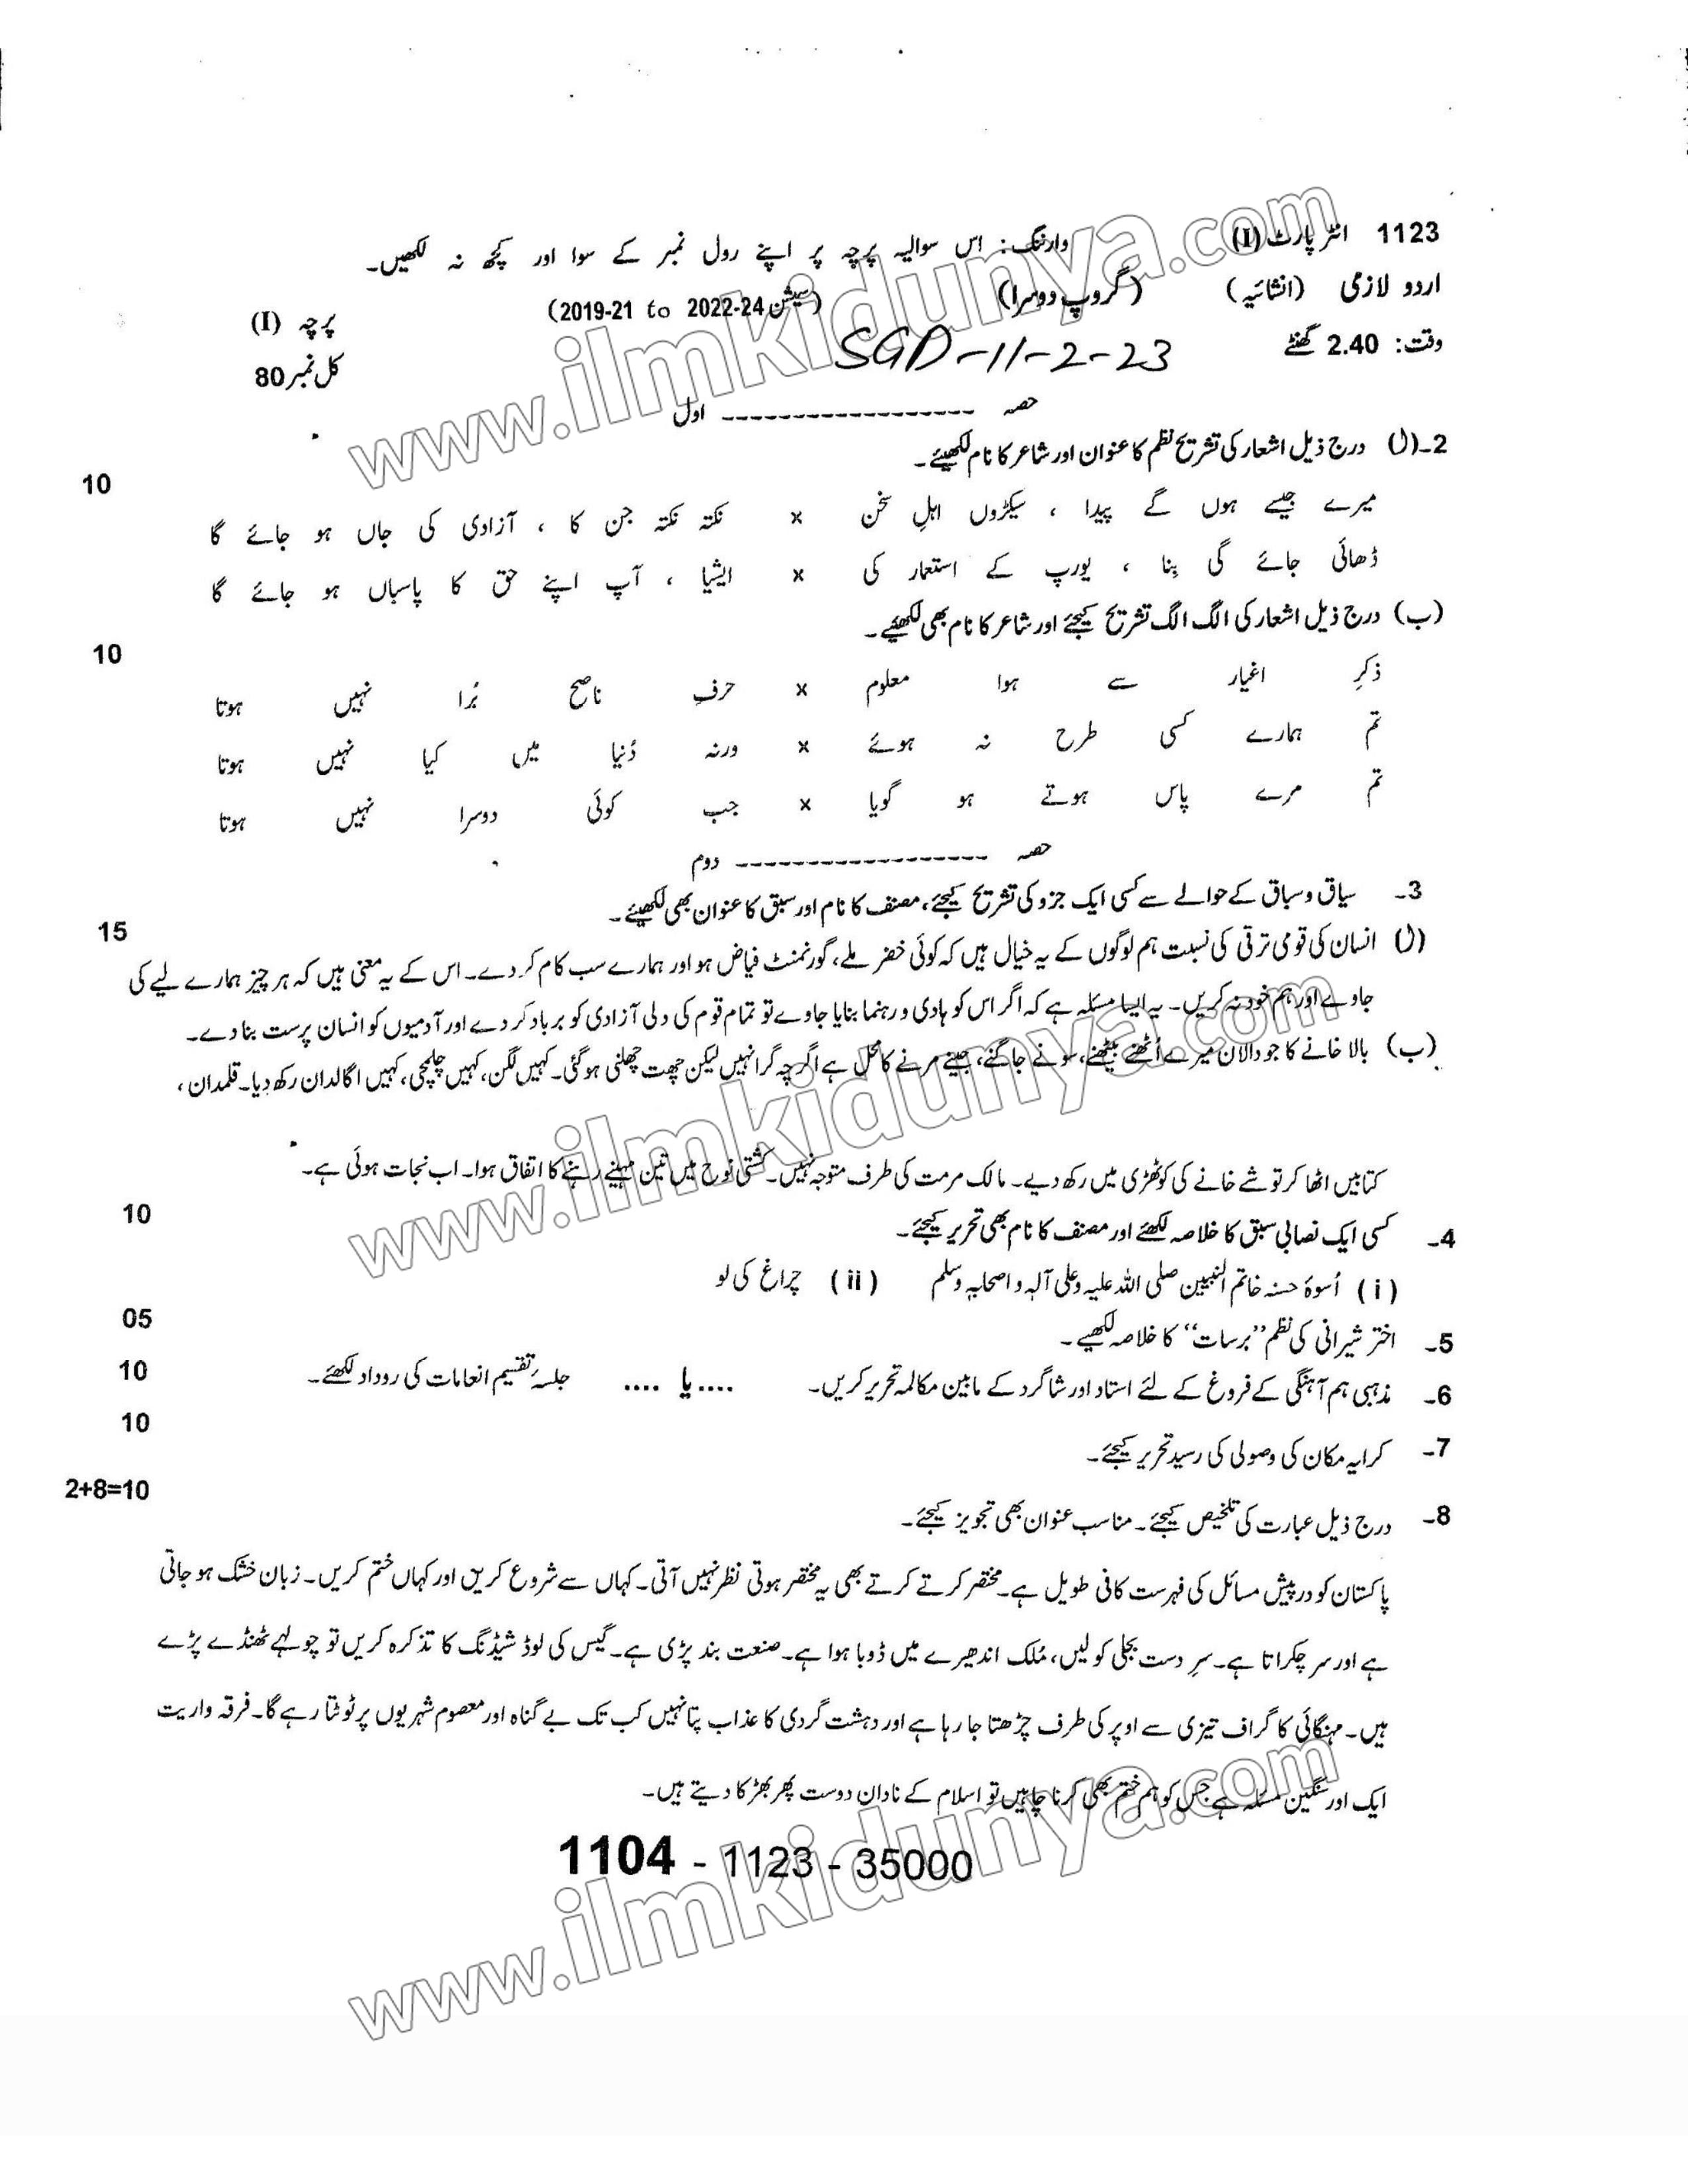 1123 انٹر پارٹ (I) وارننگ: اس سوالیہ پرچہ پر اپنے رول نمبر کے سوا اور کچھ نہ لکھیں۔
اردو لازمی (انشائیہ) (گروپ دوسرا) (سیشن 2019-21 to 2022-24) پرچہ (I)
وقت: 2.40 گھنٹے SGD-11-2-23 کل نمبر 80
حصہ ------------------ اول
2۔(ا) درج ذیل اشعار کی تشریح نظم کا عنوان اور شاعر کا نام لکھیئے۔ 10
میرے جیسے ہوں گے پیدا ، سیکڑوں اہلِ سخن x نکتہ نکتہ جن کا ، آزادی کی جاں ہو جائے گا
ڈھائی جائے گی بِنا ، یورپ کے استعمار کی x ایشیا ، آپ اپنے حق کا پاسباں ہو جائے گا
(ب) درج ذیل اشعار کی الگ الگ تشریح کیجئے اور شاعر کا نام بھی لکھئیے۔ 10
ذکرِ اغیار سے ہوا معلوم x حرفِ ناصح بُرا نہیں ہوتا
تم ہمارے کسی طرح نہ ہوئے x ورنہ دُنیا میں کیا نہیں ہوتا
تم مرے پاس ہوتے ہو گویا x جب کوئی دوسرا نہیں ہوتا
حصہ ------------------ دوم
3۔ سیاق و سباق کے حوالے سے کسی ایک جزو کی تشریح کیجئے، مصنف کا نام اور سبق کا عنوان بھی لکھیئے۔ 15
(ا) انسان کی قومی ترقی کی نسبت ہم لوگوں کے یہ خیال ہیں کہ کوئی خضر ملے، گورنمنٹ فیاض ہو اور ہمارے سب کام کر دے۔ اس کے یہ معنی ہیں کہ ہر چیز ہمارے لیے کی
جاوے اور ہم خود نہ کریں۔ یہ ایسا مسئلہ ہے کہ اگر اس کو ہادی و رہنما بنایا جاوے تو تمام قوم کی دلی آزادی کو برباد کر دے اور آدمیوں کو انسان پرست بنا دے۔
(ب) بالا خانے کا جو دالان میرے اُٹھنے بیٹھنے، سونے جاگنے، جینے مرنے کا محل ہے اگرچہ گرا نہیں لیکن چھت چھلنی ہو گئی۔ کہیں لگن، کہیں چلمچی، کہیں اگالدان رکھ دیا۔ قلمدان،
کتابیں اٹھا کر توشے خانے کی کوٹھڑی میں رکھ دیے۔ مالک مرمت کی طرف متوجہ نہیں۔ کشتی نوح میں تین مہینے رہنے کا اتفاق ہوا۔ اب نجات ہوئی ہے۔
4۔ کسی ایک نصابی سبق کا خلاصہ لکھئے اور مصنف کا نام بھی تحریر کیجئے۔ 10
(i) اُسوۂ حسنہ خاتم النبیین صلی اللہ علیہ وعلی آلہٖ و اصحابہٖ وسلم (ii) چراغ کی لو
5۔ اختر شیرانی کی نظم ”برسات“ کا خلاصہ لکھیے۔ 05
6۔ مذہبی ہم آہنگی کے فروغ کے لئے استاد اور شاگرد کے مابین مکالمہ تحریر کریں۔ ....یا .... جلسۂ تقسیم انعامات کی روداد لکھئے۔ 10
7۔ کرایہ مکان کی وصولی کی رسید تحریر کیجئے۔ 10
8۔ درج ذیل عبارت کی تلخیص کیجئے۔ مناسب عنوان بھی تجویز کیجئے۔ 2+8=10
پاکستان کو درپیش مسائل کی فہرست کافی طویل ہے۔ مختصر کرتے کرتے بھی یہ مختصر ہوتی نظر نہیں آتی۔ کہاں سے شروع کریں اور کہاں ختم کریں۔ زبان خشک ہو جاتی
ہے اور سر چکراتا ہے۔ سرِ دست بجلی کو لیں، مُلک اندھیرے میں ڈوبا ہوا ہے۔ صنعت بند پڑی ہے۔ گیس کی لوڈ شیڈنگ کا تذکرہ کریں تو چولہے ٹھنڈے پڑے
ہیں۔ مہنگائی کا گراف تیزی سے اوپر کی طرف چڑھتا جا رہا ہے اور دہشت گردی کا عذاب پتا نہیں کب تک بے گناہ اور معصوم شہریوں پر ٹوٹتا رہے گا۔ فرقہ واریت
ایک اور سنگین مسئلہ ہے جس کو ہم ختم بھی کرنا چاہیں تو اسلام کے نادان دوست پھر بھڑکا دیتے ہیں۔
1104 - 1123 - 35000
www.ilmkidunya.com
www.ilmkidunya.com
www.ilmkidunya.com